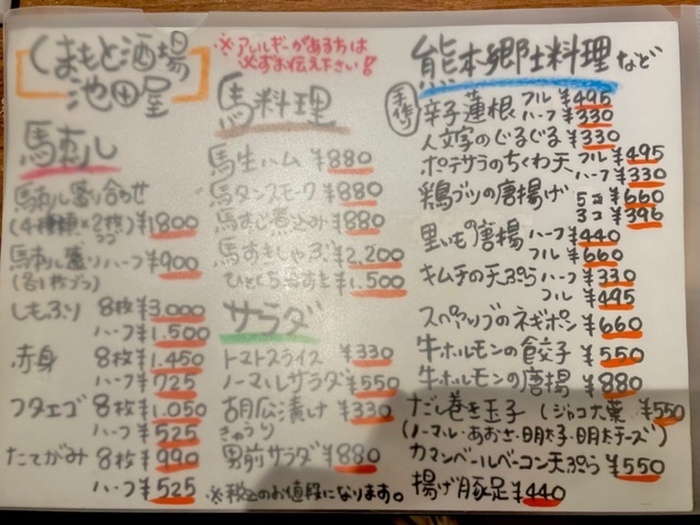 くまもと酒場
池田屋
※アレルギーがある方は
必ずお伝え下さい!
馬刺し
馬刺し盛り合わせ
(4種類×2枚)¥1800
馬刺し盛りハーフ¥900
(各1枚づつ)
しもふり 8枚¥3,000
ハーフ¥1,500
赤身 8枚¥1,450
ハーフ¥725
フタエゴ 8枚¥1,050
ハーフ¥525
たてがみ 8枚¥990
ハーフ¥525
馬料理
馬生ハム ¥880
馬タンスモーク ¥880
馬すじ煮込み ¥880
馬すきしゃぶ ¥2,200
ひとくち馬すき ¥1,500
サラダ
トマトスライス ¥330
ノーマルサラダ ¥550
胡瓜漬け ¥330
きゅうり
男前サラダ ¥880
※税込のお値段になります。
熊本郷土料理など
手作り
辛子蓮根 フル ¥495
ハーフ ¥330
人文字のぐるぐる ¥330
ポテサラのちくわ天 フル ¥495
ハーフ ¥330
鶏ブツの唐揚げ 5コ ¥660
3コ ¥396
里いもの唐揚 ハーフ ¥440
フル ¥660
キムチの天ぷら ハーフ ¥330
フル ¥495
スペアリブのネギポン ¥660
牛ホルモンの餃子 ¥550
牛ホルモンの唐揚 ¥880
だし巻き玉子 (ジャコ大葉 ¥550
(ノーマル・あおさ・明太子・明太チーズ)
カマンベールベーコン天ぷら ¥550
揚げ豚足 ¥440